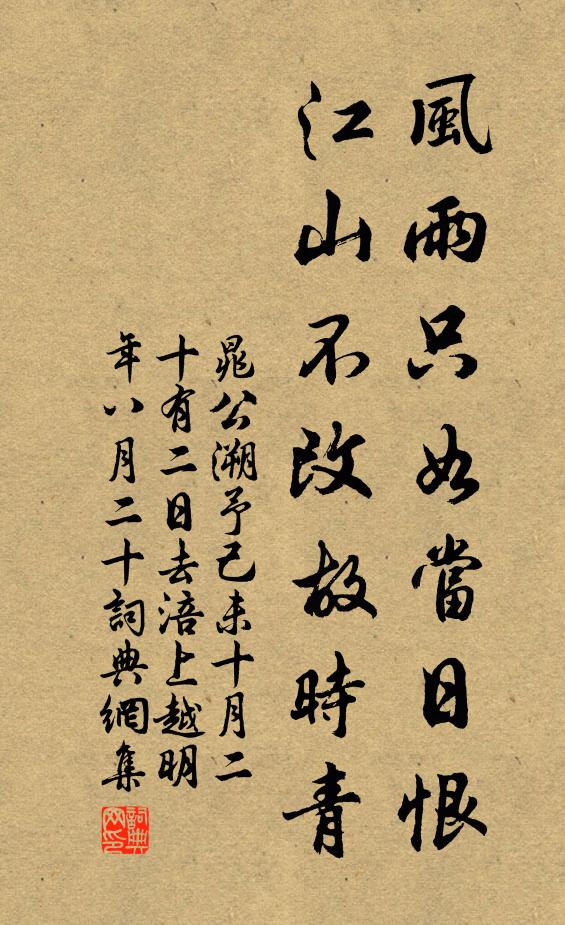 風雨只如當日恨
江山不改故時青
晁公溯予己未十月二
十有二日去涪上越明
年八月二十詞典網集
詞典
网印